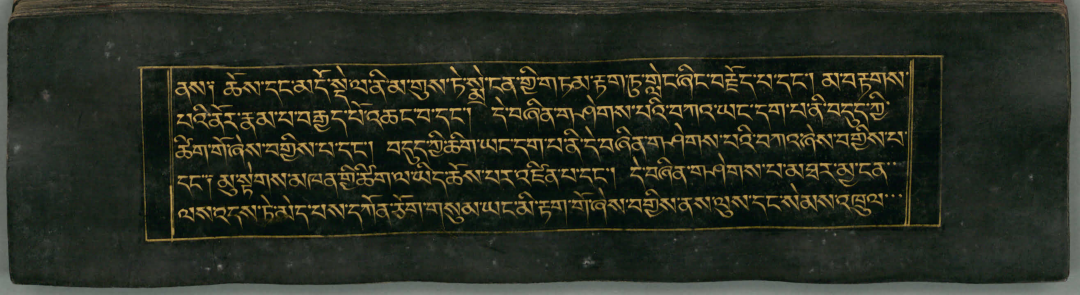 ནས། ཆོས་དང་མདོ་སྡེ་ལ་ནི་མ་གུས་ཏེ་སྨྲེ་ངན་གྱི་གཏམ་རྟག་ཏུ་གླེང་ཞིང་བརྗོད་པ་དང་། མ་བརྟགས་
པའི་ནོར་རྣམ་པ་བརྒྱད་པོ་འཆང་བ་དང་། དེ་བཞིན་གཤེགས་པའི་བཀའ་ཡང་དག་པ་ནི་བདུད་ཀྱི་
ཚིག་གོ་ཞེས་བགྱིས་པ་དང་། བདུད་ཀྱི་ཚིག་ཡང་དག་པ་ནི་དེ་བཞིན་གཤེགས་པའི་བཀའ་ཞེས་བགྱིས་པ་
དང་། མུ་སྟེགས་མཁན་གྱི་ཚིག་ལ་ཡིད་ཆོས་པར་འཛིན་པ་དང་། དེ་བཞིན་གཤེགས་པ་མ་ཐར་མྱ་ངན་
ལས་འདས་ཏེ་མེད་པས་དཀོན་ཅོག་གསུམ་ཡང་མི་རྟག་གོ་ཞེས་བགྱིས་ནས་ལུས་དང་སེམས་འཁྲུལ་